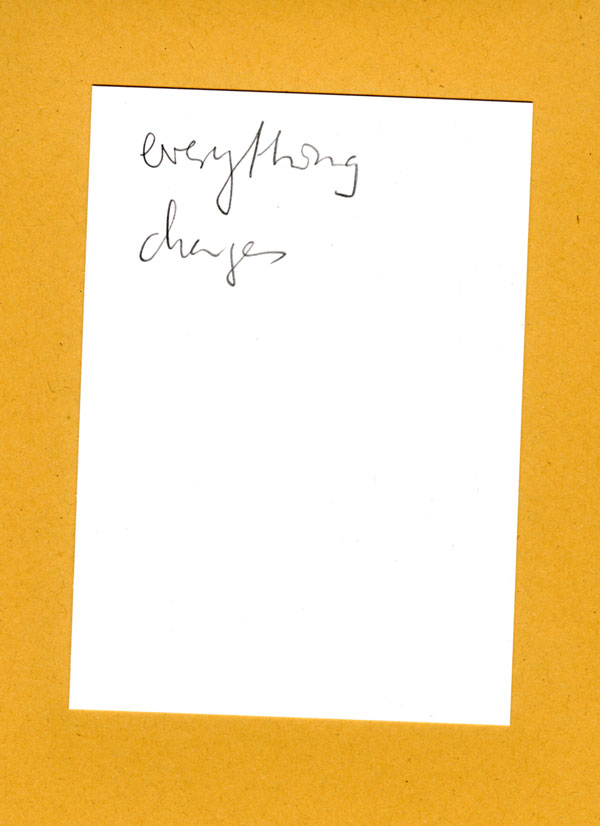 everything
changes